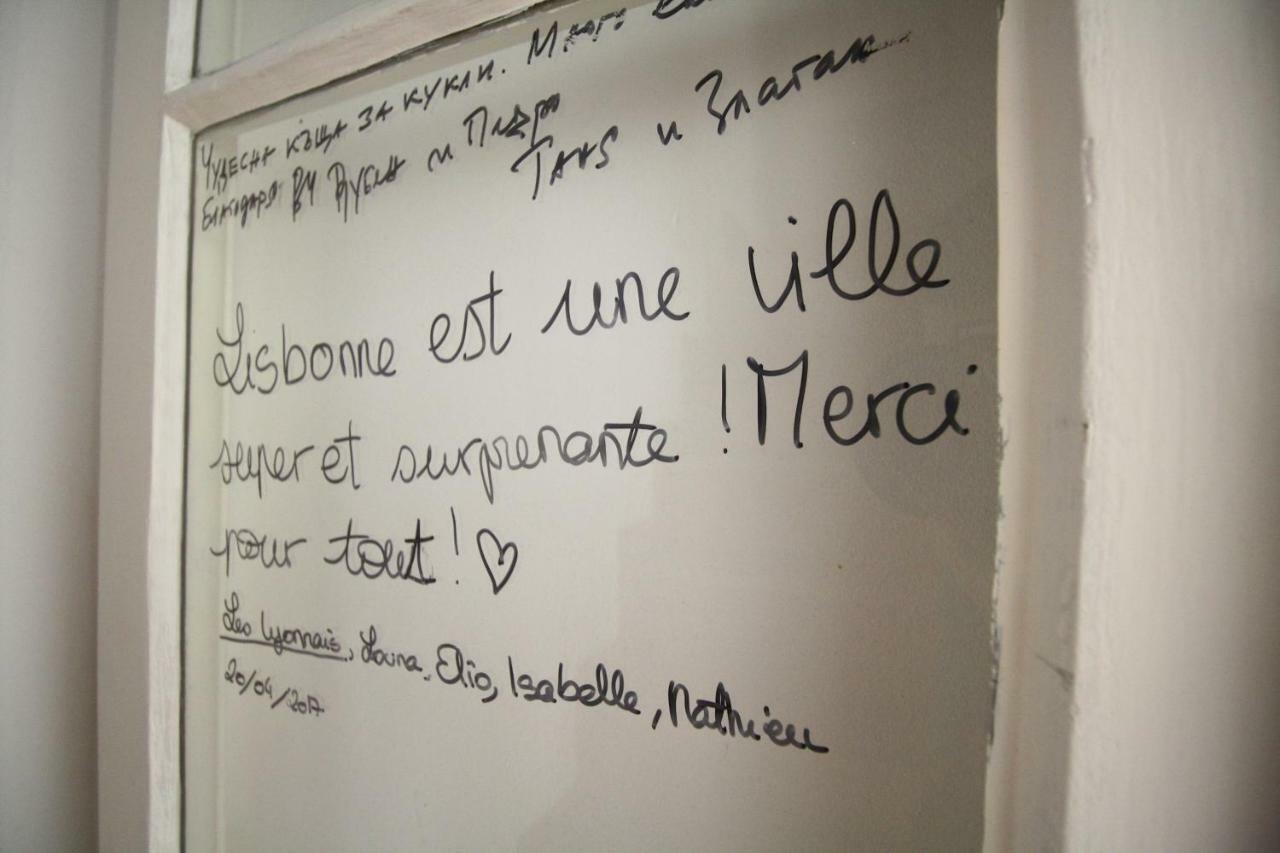 ЧУДЕСНА КЪЩА ЗА КУКЛИ. МНОГО
БЛАГОДАРЯ ВИ и
ТАНЯ и Златан
Lisbonne est une ville
super et surprenante ! Merci
pour tout ! ♡
Les lyonnais, Louna, Elio, Isabelle, Mathieu
20/04/2017